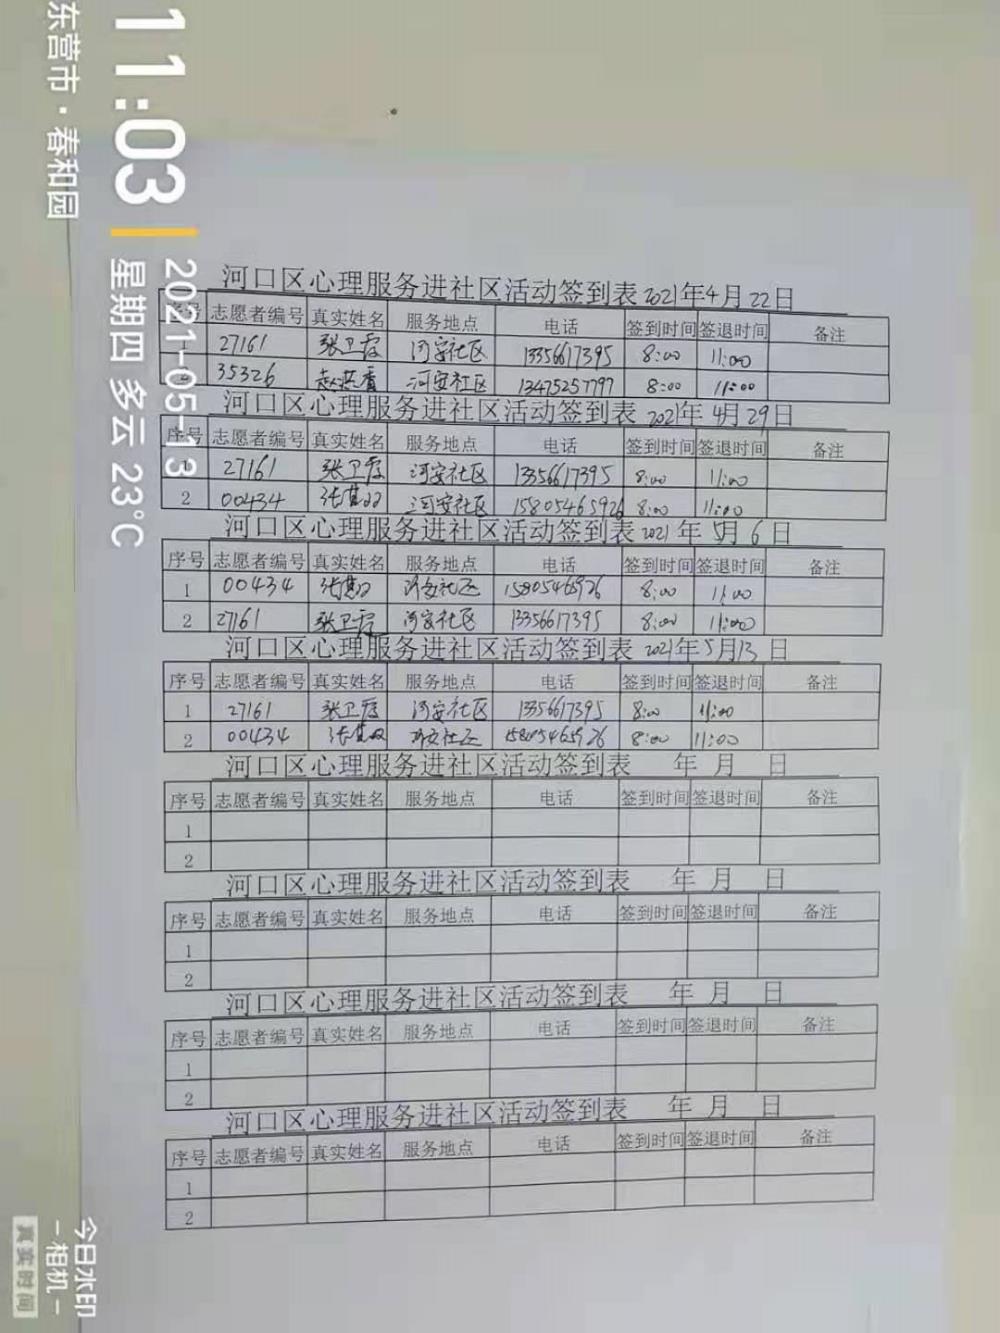 11:03
2021-05-13
星期四 多云 23℃
东营市·春和园
河口区心理服务进社区活动签到表 2021年4月22日
序号 志愿者编号 真实姓名 服务地点 电话 签到时间 签退时间 备注
1 27161 张卫霞 河安社区 13356617395 8:00 11:00
2 35326 赵燕香 河安社区 13475257797 8:00 11:00
河口区心理服务进社区活动签到表 2021年4月29日
序号 志愿者编号 真实姓名 服务地点 电话 签到时间 签退时间 备注
1 27161 张卫霞 河安社区 13356617395 8:00 11:00
2 00434 张 河安社区 15805465926 8:00 11:00
河口区心理服务进社区活动签到表 2021年5月6日
序号 志愿者编号 真实姓名 服务地点 电话 签到时间 签退时间 备注
1 00434 张 河安社区 15805465926 8:00 11:00
2 27161 张卫霞 河安社区 13356617395 8:00 11:00
河口区心理服务进社区活动签到表 2021年5月13日
序号 志愿者编号 真实姓名 服务地点 电话 签到时间 签退时间 备注
1 27161 张卫霞 河安社区 13356617395 8:00 11:00
2 00434 张 河安社区 15805465926 8:00 11:00
河口区心理服务进社区活动签到表 年 月 日
序号 志愿者编号 真实姓名 服务地点 电话 签到时间 签退时间 备注
1
2
河口区心理服务进社区活动签到表 年 月 日
序号 志愿者编号 真实姓名 服务地点 电话 签到时间 签退时间 备注
1
2
河口区心理服务进社区活动签到表 年 月 日
序号 志愿者编号 真实姓名 服务地点 电话 签到时间 签退时间 备注
1
2
河口区心理服务进社区活动签到表 年 月 日
序号 志愿者编号 真实姓名 服务地点 电话 签到时间 签退时间 备注
1
2
今日水印
-相机-
真实时间